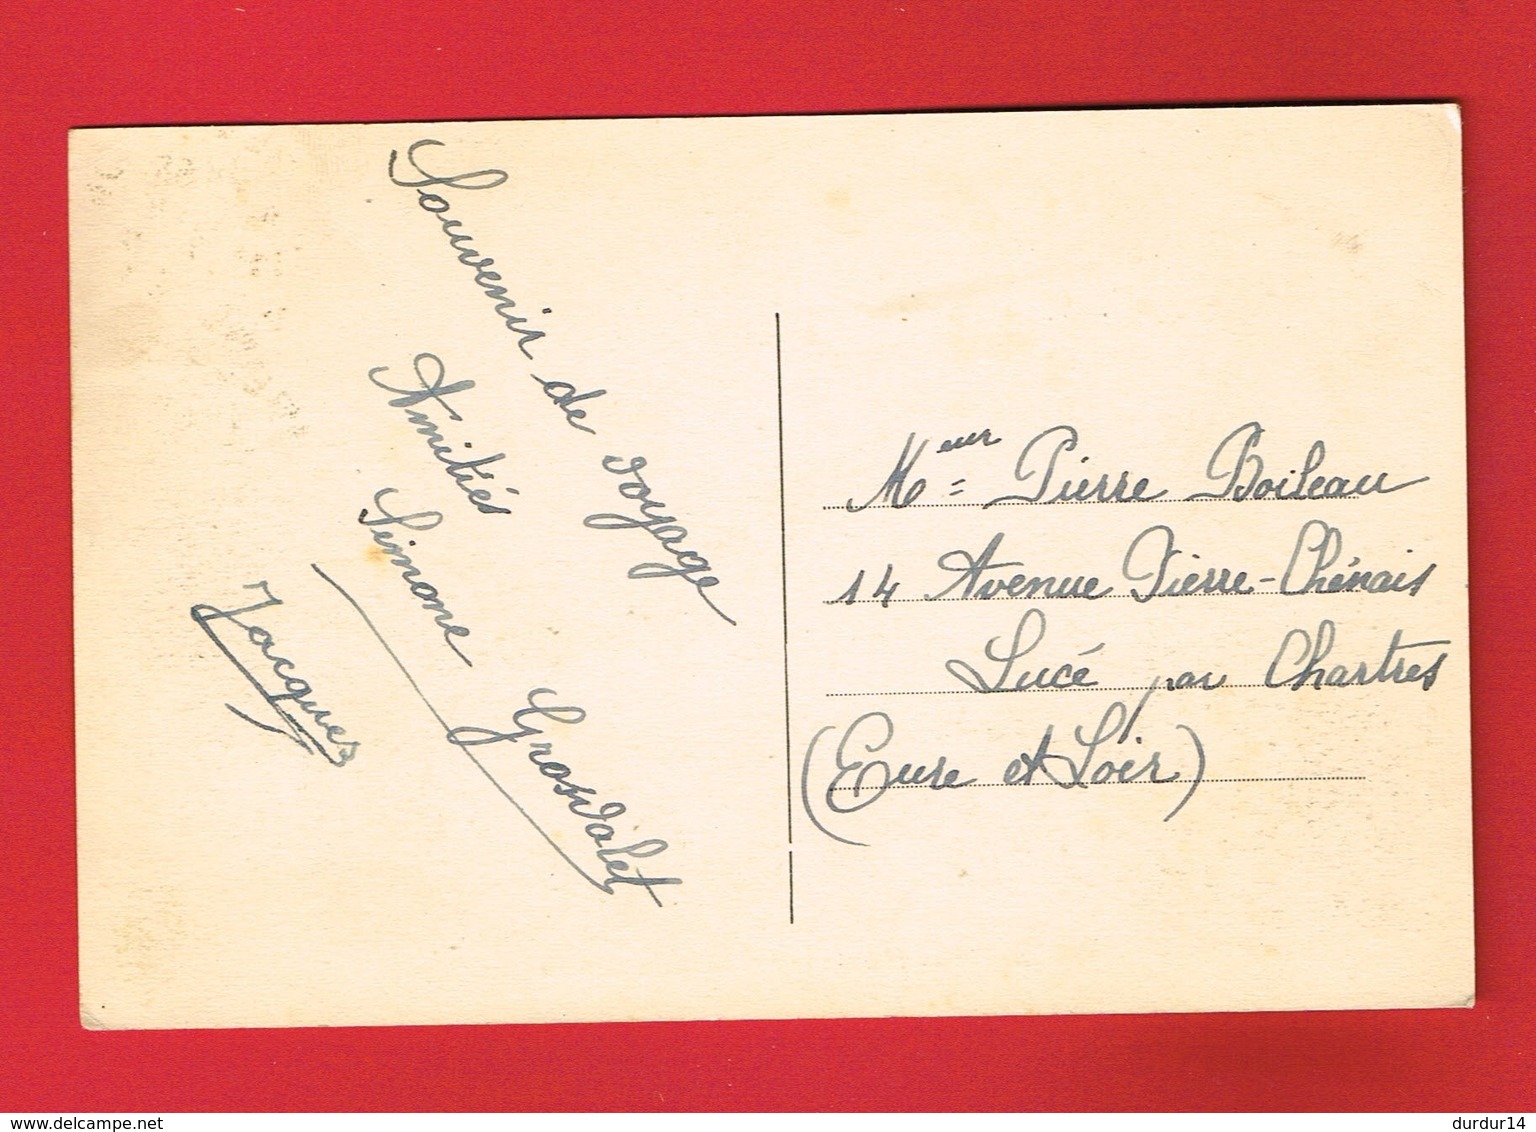 Souvenir de voyage
Amitiés
Simone Grosvalet
Jacques
Meur = Pierre Boileau
14 Avenue Pierre-Chénais
Lucé par Chartres
(Eure et Loir)
www.delcampe.net
durdur14